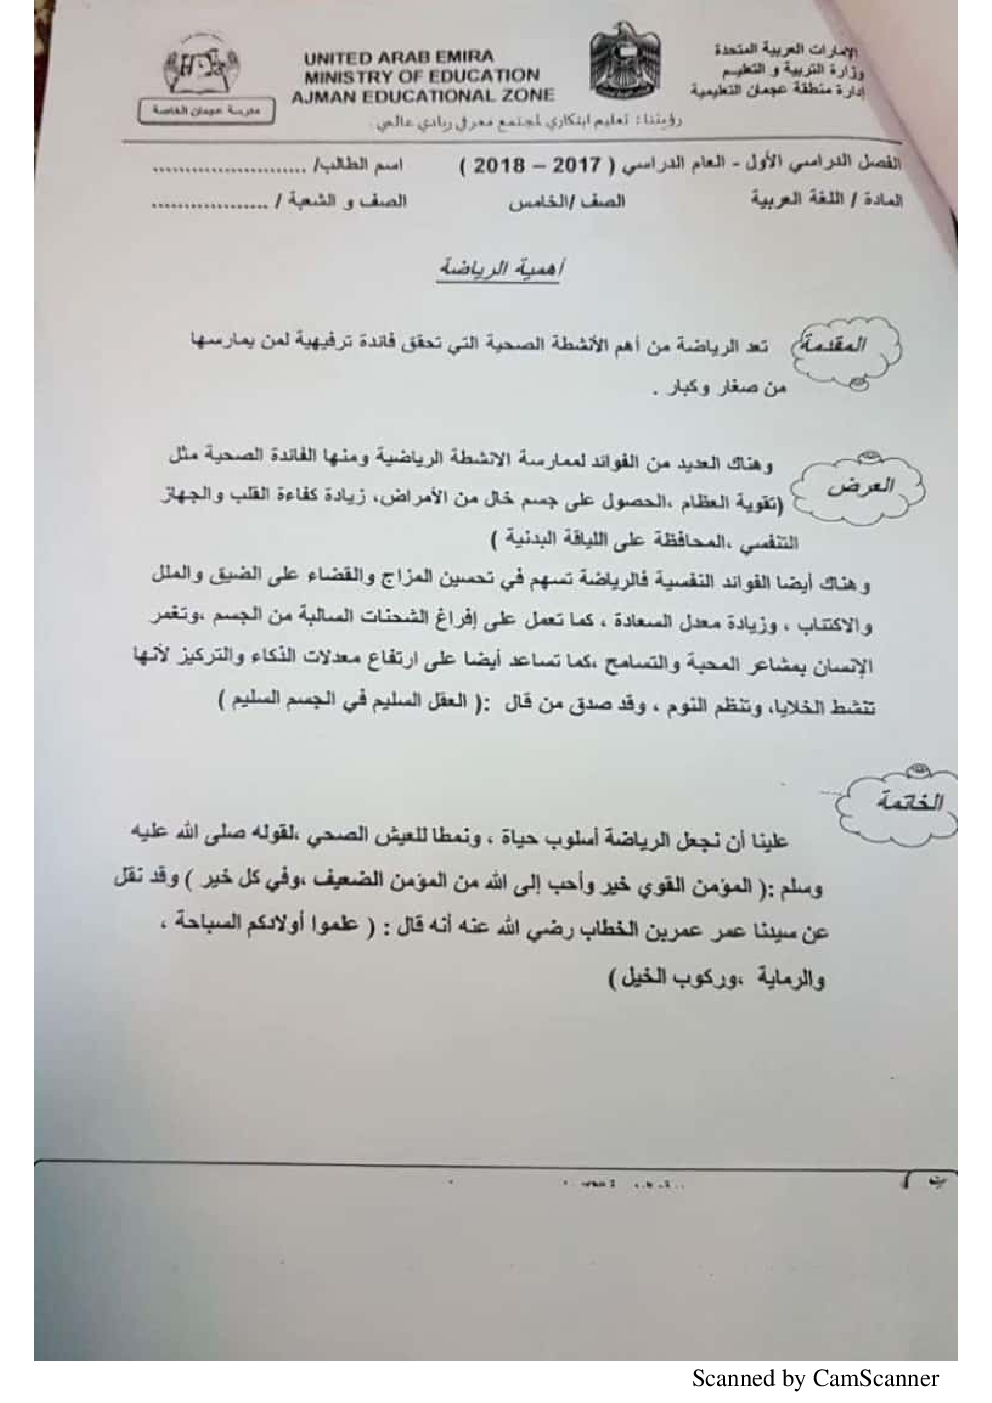 الإمارات العربية المتحدة
وزارة التربية و التعليم
إدارة منطقة عجمان التعليمية
UNITED ARAB EMIRA
MINISTRY OF EDUCATION
AJMAN EDUCATIONAL ZONE
مدرسة عجمان الخاصة
رؤيتنا: تعليم ابتكاري لمجتمع معرفي ريادي عالمي
الفصل الدراسي الأول - العام الدراسي ( 2017 – 2018 ) اسم الطالب/ .........................
المادة / اللغة العربية الصف /الخامس الصف و الشعبة / ..................
أهمية الرياضة
المقدمة
تعد الرياضة من أهم الأنشطة الصحية التي تحقق فائدة ترفيهية لمن يمارسها
من صغار وكبار .
العرض
وهناك العديد من الفوائد لممارسة الانشطة الرياضية ومنها الفائدة الصحية مثل
(تقوية العظام ،الحصول على جسم خال من الأمراض، زيادة كفاءة القلب والجهاز
التنفسي ،المحافظة على اللياقة البدنية )
وهناك أيضا الفوائد النفسية فالرياضة تسهم في تحسين المزاج والقضاء على الضيق والملل
والاكتئاب ، وزيادة معدل السعادة ، كما تعمل على إفراغ الشحنات السالبة من الجسم ،وتغمر
الإنسان بمشاعر المحبة والتسامح ،كما تساعد أيضا على ارتفاع معدلات الذكاء والتركيز لأنها
تنشط الخلايا، وتنظم النوم ، وقد صدق من قال :( العقل السليم في الجسم السليم )
الخاتمة
علينا أن نجعل الرياضة أسلوب حياة ، ونمطا للعيش الصحي ،لقوله صلى الله عليه
وسلم :( المؤمن القوي خير وأحب إلى الله من المؤمن الضعيف ،وفي كل خير ) وقد نقل
عن سيدنا عمر عمربن الخطاب رضي الله عنه أنه قال : ( علموا أولادكم السباحة ،
والرماية ،وركوب الخيل )
Scanned by CamScanner